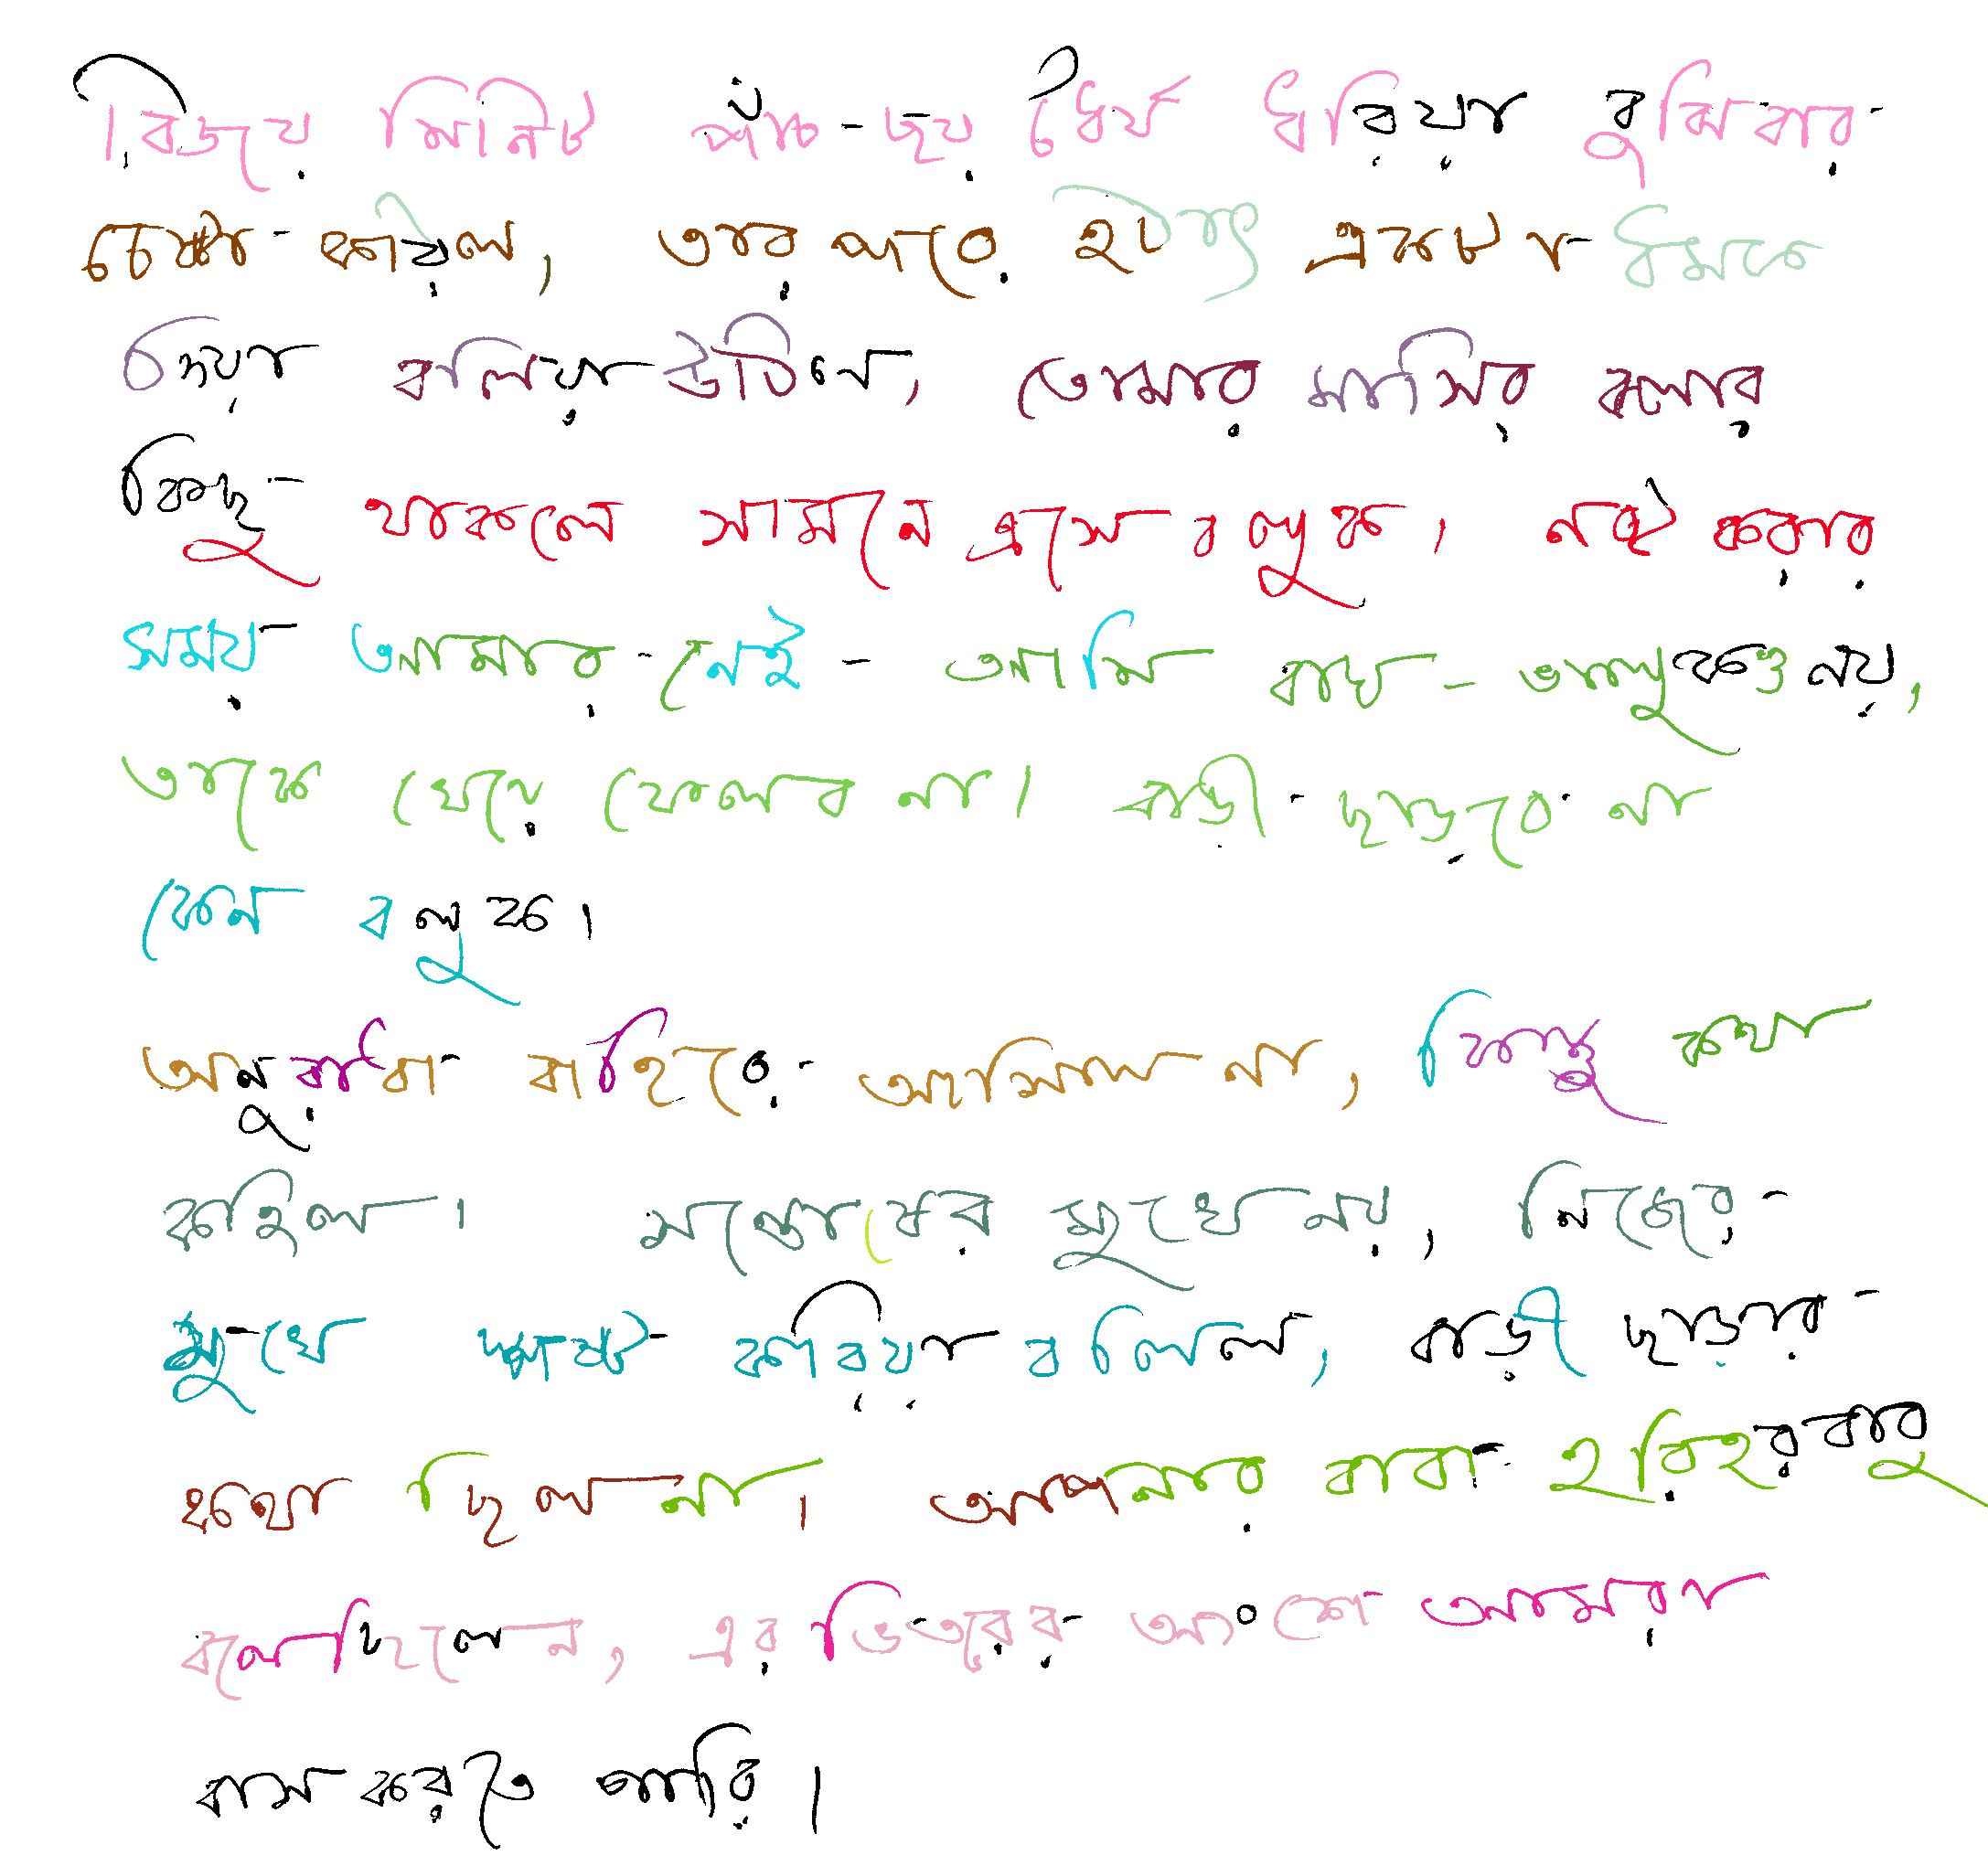 বিজয় মিনিট পাঁচ-ছয় ধৈর্য ধরিয়া বুঝিবার
চেষ্টা করিল, তারপরে হঠাৎ একটা ধমকে
দিয়া বলিয়া উঠিল, তোমার মাসির বলার
কিছু থাকলে সামনে এসে বলুক। নষ্ট করার
সময় আমার নেই - আমি বাঘ-ভালুকও নয়,
তাকে খেয়ে ফেলব না। বাড়ী ছাড়বে না
কেন বলুক।
অনুরাধা বাহিরে আসিল না, কিন্তু কথা
কহিল। সন্তোষের মুখে নয়, নিজের
মুখে স্পষ্ট করিয়া বলিল, বাড়ী ছাড়ার
কথা ছিল না। আপনার বাবা হরিহরবাবু
বলেছিলেন, এর ভিতরের অংশে আমরা
বাস করতে পারি।